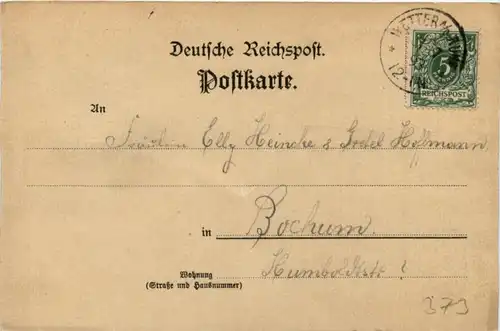 Deutsche Reichspost.
Postkarte.
WETTER
12-1N
5
REICHSPOST
An
Fräulein Elly Heincke & Hoffmann
in Bochum.
Wohnung
(Straße und Hausnummer)
Humboldtstr
379